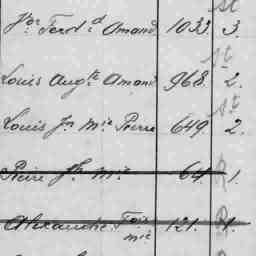 St
Jos. Ferd.d Amand 1033. 3.
St
Louis Aug.te Amand 968. 2.
St
Louis Jn Mie Pierre 649. 2.
Pierre Jh Mie 64. R 1.
Alexandre Foix Mie 121. R 1.